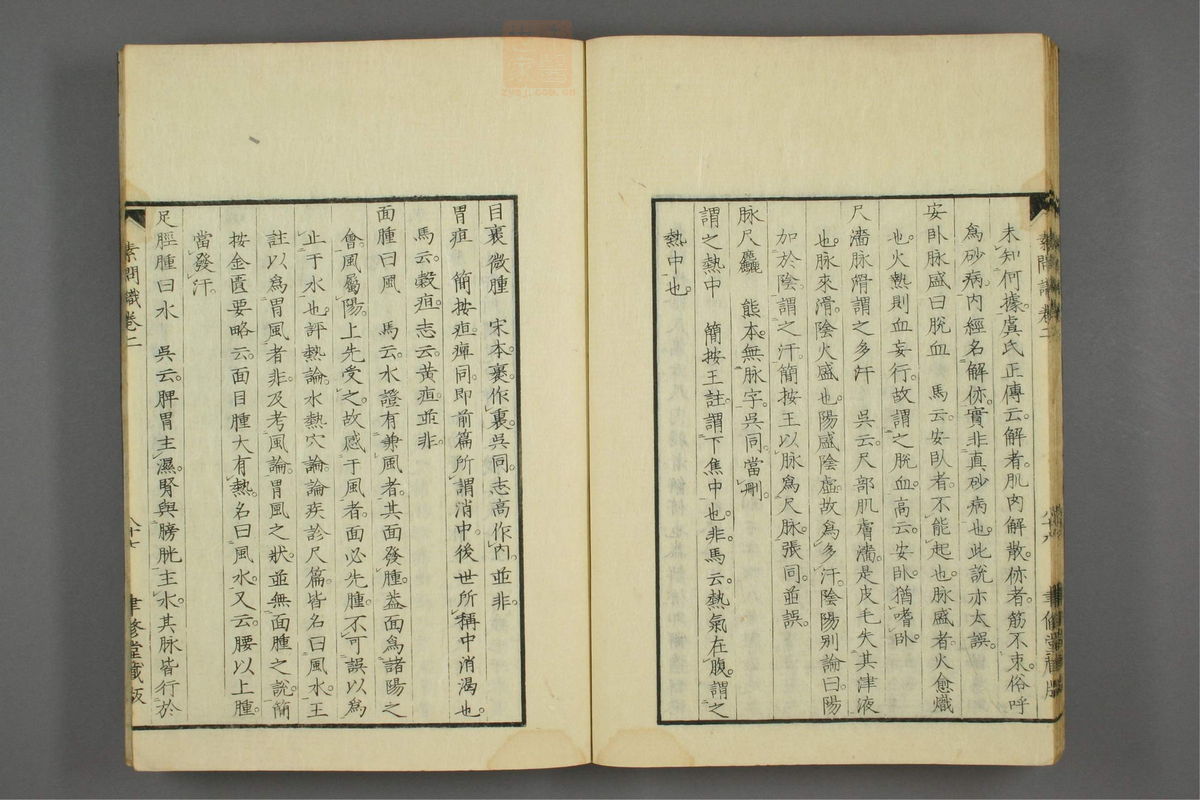 未知何據。虞氏正傳云。解者。肌肉解散。㑊者。筋不束。俗呼
為砂病。內經名解㑊。實非真砂病也。此說亦太誤。
安卧脉盛曰脫血　馬云。安臥者。不能起也。脉盛者。火愈熾
也。火熱則血妄行。故謂之脫血。高云。安卧。猶嗜卧。
尺濇脉滑謂之多汗　吳云。尺部肌膚濇。是皮毛失其津液
也。脉來滑。陰火盛也。陽盛陰虛。故為多汗。陰陽別論曰。陽
加於陰。謂之汗。簡按。王以脉為尺脉。張同。並誤。
脉尺麤　熊本。無脉字。吳同。當刪。
謂之熱中　簡按。王註。謂下焦中也。非。馬云。熱氣在腹。謂之
熱中也。
素問識卷二
八十六
聿修堂藏版
目裹微腫　宋本。裹作裏。吳同。志高作內。並非。
胃疸　簡按。疸癉同。即前篇所謂消中。後世所稱中消渴也。
馬云。穀疸。志云。黃疸。並非。
面腫曰風　馬云。水證有兼風者。其面發腫。蓋面為諸陽之
會。風屬陽。上先受之。故感于風者。面必先腫。不可誤以為
止于水也。評熱論。水熱穴論。論疾診尺篇。皆名曰風水。王
註以為胃風者非。及考風論。胃風之狀。並無面腫之說。簡
按金匱要略云。面目腫大有熱。名曰風水。又云。腰以上腫。
當發汗。
足脛腫曰水　吳云。脾胃主濕。腎與膀胱主水。其脉皆行於
素問識卷二
八十七
聿修堂藏版